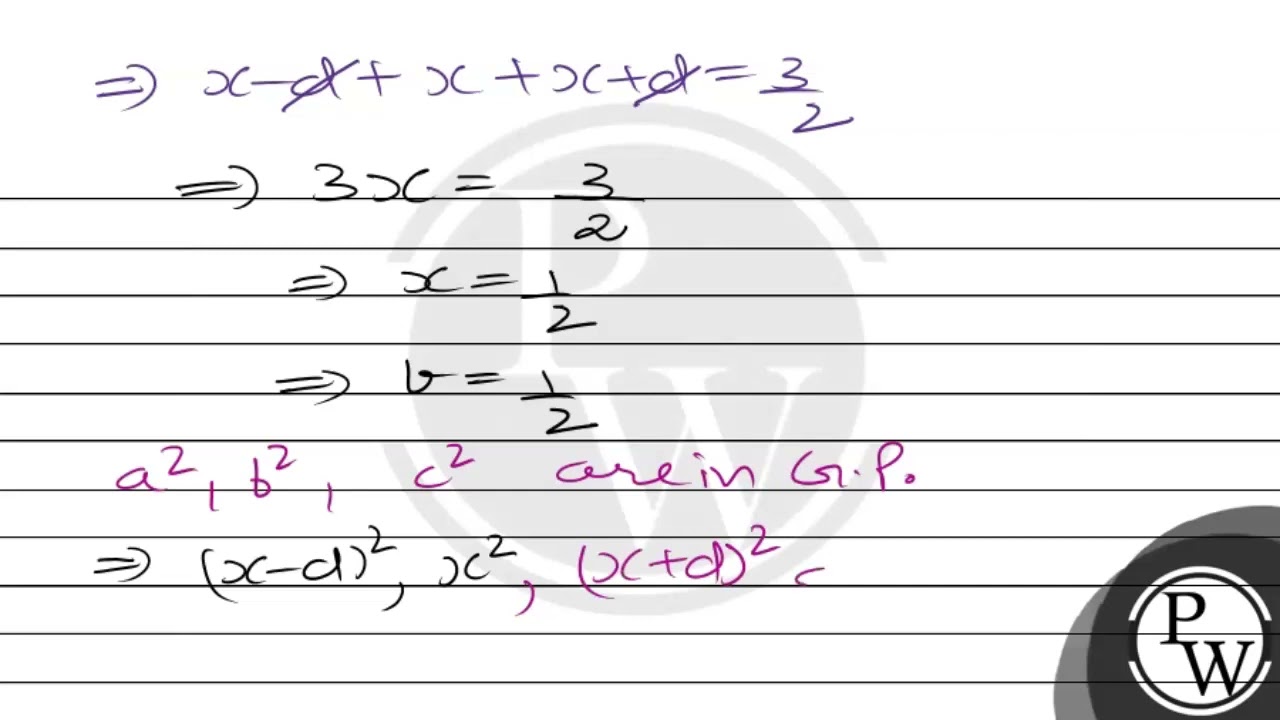 ⇒ x-d+x+x+d=3/2
⇒ 3x = 3/2
⇒ x=1/2
⇒ b=1/2
a², b², c² are in G.P.
⇒ (x-d)², x², (x+d)²
PW
PW